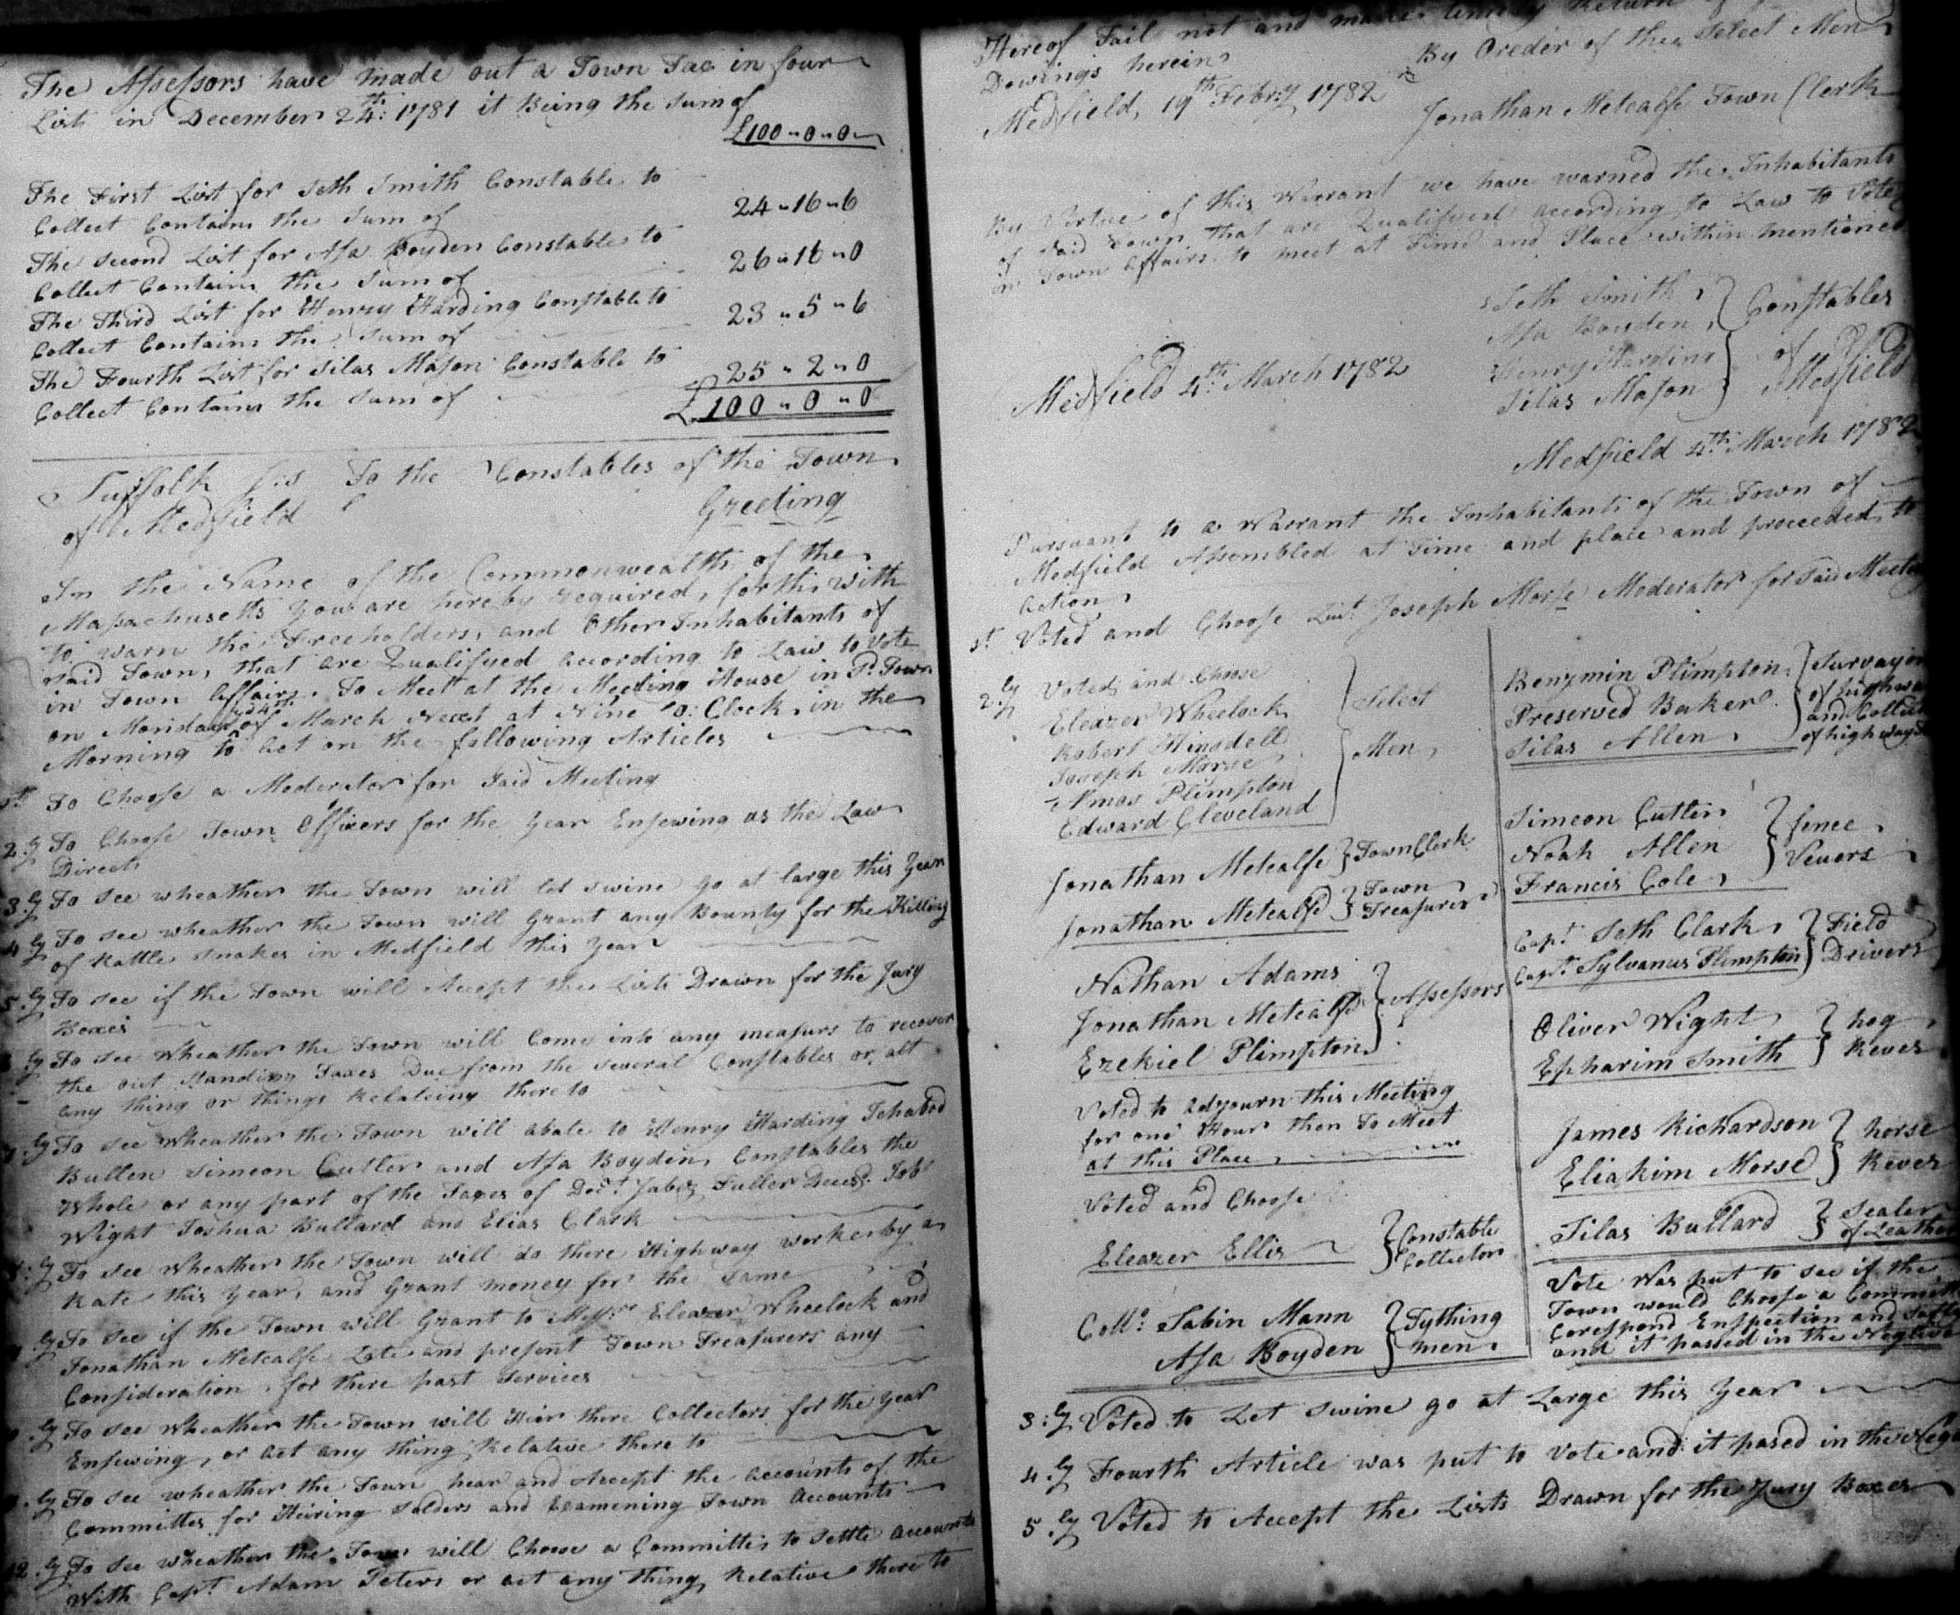 The Assessors have made out a Town Tax in four
List in December 24th: 1781 it Being the sum of
£100-0-0
The First List for Seth Smith Constable to
Collect Contains the Sum of 24-16-6
The Second List for Asa Boyden Constable to
Collect Contains the Sum of 26-16-0
The Third List for Henry Harding Constable to
Collect Contains the Sum of 23-5-6
The Fourth List for Silas Mason Constable to
Collect Contains the Sum of 25-2-0
£100-0-0
Suffolk ss To the Constables of the Town
of Medfield Greeting
In the Name of the Commonwealth of the
Massachusetts You are hereby required, forthwith
to warn the Freeholders, and Other Inhabitants of
said Town, that are Qualifyed according to Law to Vote
in Town Affairs. To Meet at the Meeting House in Sd. Town
on Monday ye 4th of March Next at Nine o:Clock, in the
Morning to act on the following Articles
1st To Choose a Moderator for Said Meeting
2ly To Choose Town Officers for the Year Ensewing as the Law
Directs
3ly To see wheather the Town will let swine go at large this Year
4ly To see wheather the Town will Grant any Bounty for the Killing
of Rattle snakes in Medfield this Year
5ly To see if the Town will Accept the Lists Drawn for the Jury
Boxes
ly To see Wheather the Town will Come into any measurs to recover
the out standing Taxes Due from the several Constables or act
any thing or things Relateing there to
ly To see Wheather the Town will abate to Henry Harding Ichabod
Bullen Simeon Cutler and Asa Boyden, Constables the
Whole or any part of the Taxes of Doct. Jabez Fuller Decesd. Job
Wight Joshua Bullard and Elias Clark
ly To see Wheather the Town will do there Highway worke by a
Rate this Year, and Grant money for the same
ly To see if the Town will Grant to Messrs Eleazer Wheelock and
Jonathan Metcalfe Late and present Town Treasurers any
Consideration, for there past Services
ly To see Wheather the Town will Hier there Collectors for the Year
Ensewing, or act any thing Relative there to
ly To see wheather the Town hear and Accept the accounts of the
Committes for Hiering Solders and Examening Town Accounts
12ly To see Wheather the Town will Choose a Committe to settle accounts
With Capt Adam Peters or act any thing Relative there to
Hereof Fail not and make Return
Dowings herein By Oreder of the Select Men
Medfield, 19th Febry 1782
Jonathan Metcalfe Town Clerk
By Vertue of this Warrant we have warned the Inhabitants
of said Town that are Qualifyed according to Law to Vote
in Town Affairs to meet at Time and Place within mentioned
Seth Smith
Asa Boyden
Henry Harding
Silas Mason
Constables
of
Medfield
Medfield 4th March 1782
Medfield 4th March 1782
Pursuant to a Warrant the Inhabitants of the Town of
Medfield Assembled at Time and place and proceeded to
Action
1st Voted and Choose Liut Joseph Morse Moderator for said Meeting
2ly Voted and Choose
Eleazer Wheelock
Robert Hinsdell
Joseph Morse
Amos Plimpton
Edward Cleveland
Select
Men
Jonathan Metcalfe Town Clerk
Jonathan Metcalfe Town
Treasurer
Nathan Adams
Jonathan Metcalfe
Ezekiel Plimpton
Assessors
Voted to Adjourn this Meeting
for one Hour then To Meet
at this Place
Voted and Choose
Eleazer Ellis Constable
Collector
Coll: Sabin Mann
Asa Boyden
Tything
men
Benjmin Plimpton
Preserved Baker
Silas Allen
Survayors
of highways
and Collect
of highway
Simeon Cutler
Noah Allen
Francis Cole
fence
Vewers
Capt Seth Clark
Capt Sylvanus Plimpton
Field
Drivers
Oliver Wight
Epharim Smith
hog
Reves
James Richardson
Eliakim Morse
horse
Reves
Silas Bullard Sealer
of Leather
Vote Was put to see if the
Town would Choose a Committe
Corespond Enspection and Safty
and it passed in the Negtive
3:ly Voted to Let swine go at Large this Year
4:ly Fourth Article was put to Vote and it pased in the
5:ly Voted to Accept the Lists Drawn for the Jury Boxes